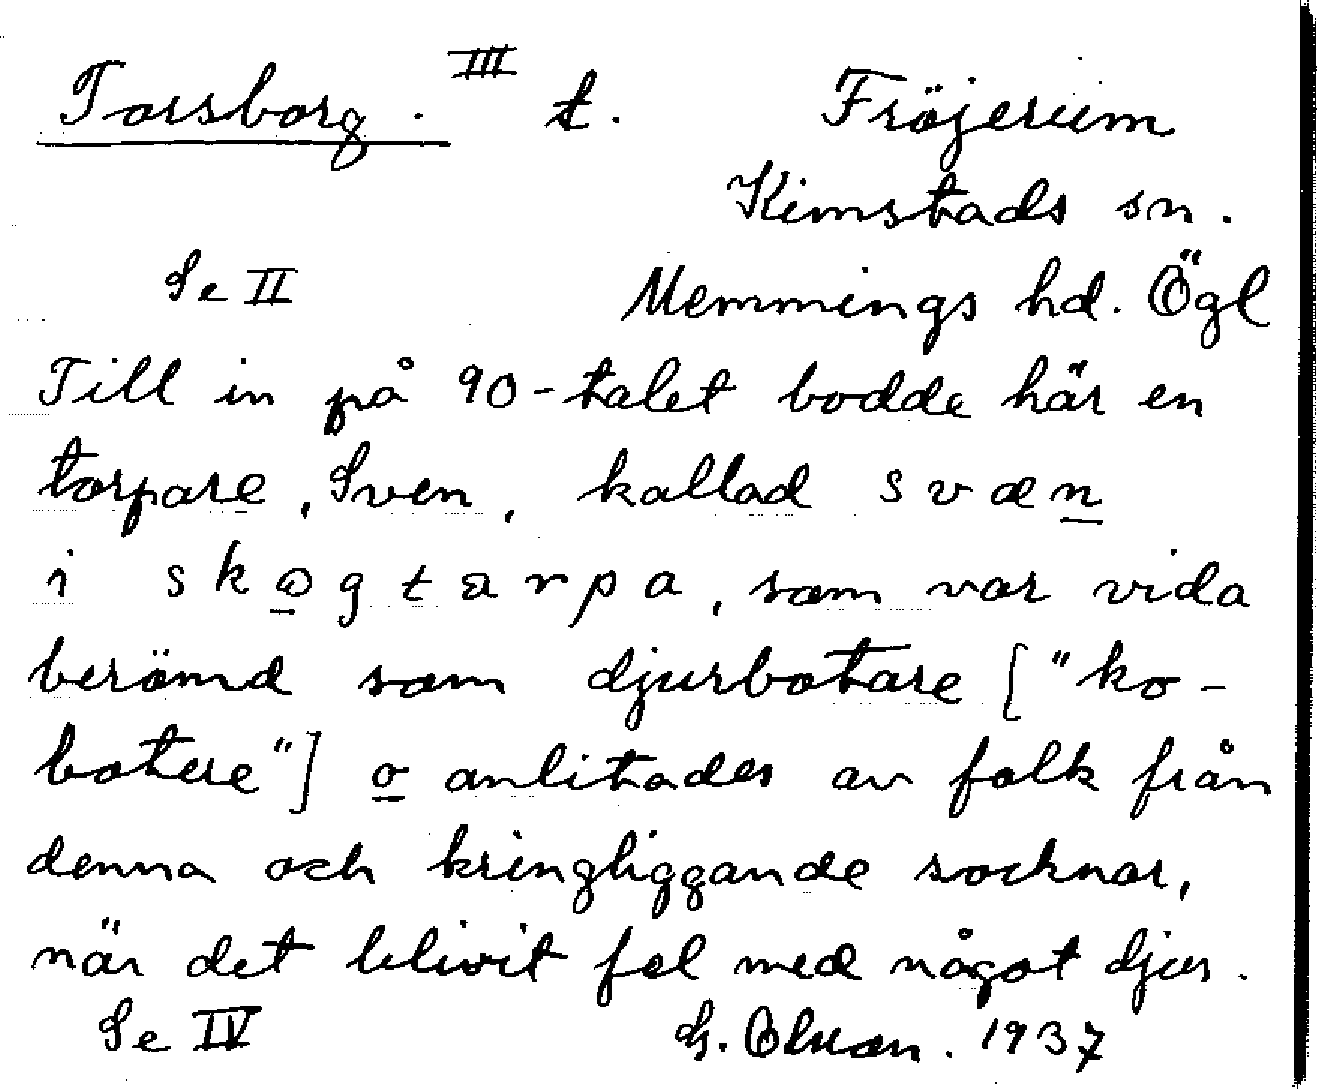 Torsborg. III t. Fröjerum
Kimstads sn.
Se II Memmings hd. Ögl
Till in på 90-talet bodde här en
torpare, Sven, kallad svæn
i skogtarpa, som var vida
berömd som djurbotare ["ko-
botere"] o anlitades av folk från
denna och kringliggande socknar,
när det blivit fel med något djur.
Se IV G. Olsson. 1937